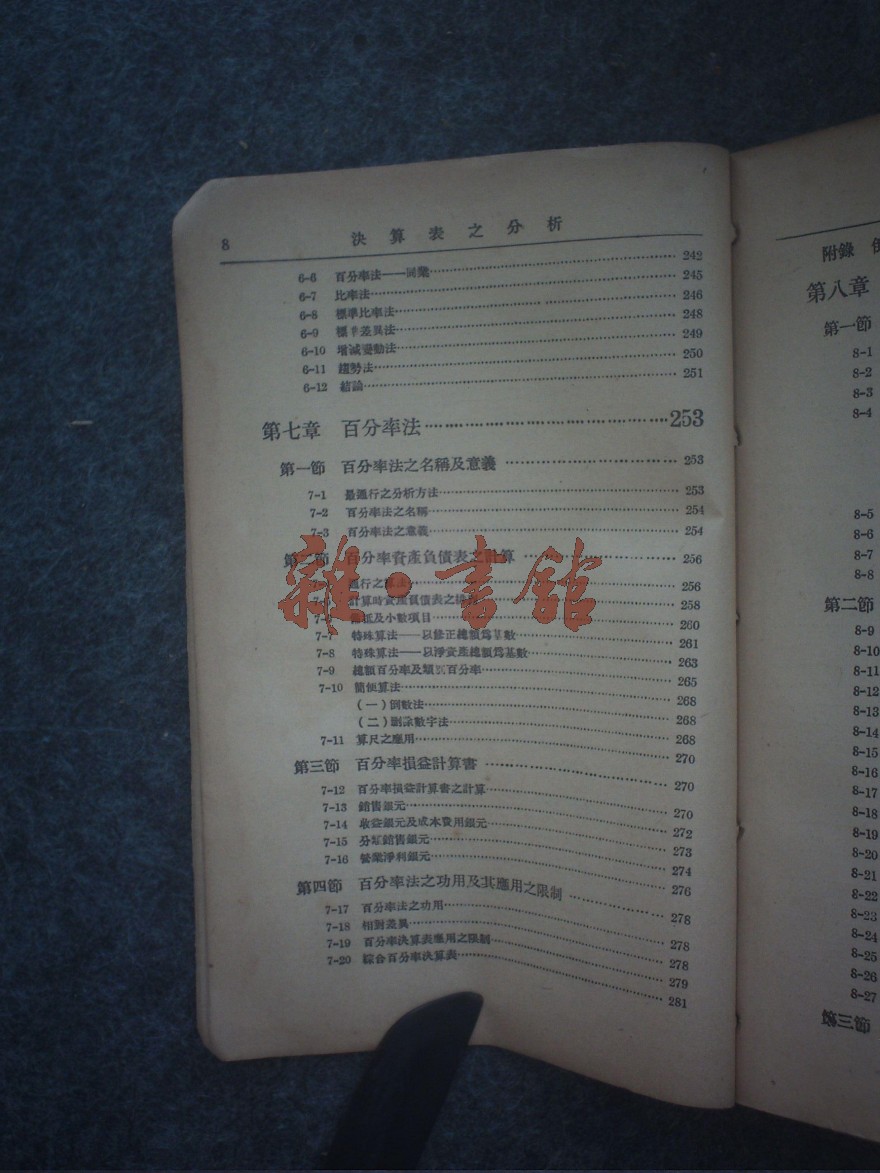 8 決算表之分析
6-6 百分率法——同業 242
6-7 比率法 245
6-8 標準比率法 246
6-9 標準差異法 248
6-10 增減變動法 249
6-11 趨勢法 250
6-12 結論 251
第七章 百分率法 253
第一節 百分率法之名稱及意義 253
7-1 最通行之分析方法 253
7-2 百分率法之名稱 254
7-3 百分率法之意義 254
第二節 百分率資產負債表之計算 256
通行之算法 256
計算時資產負債表之 258
及小數項目 260
7-7 特殊算法——以修正總額爲基數 261
7-8 特殊算法——以淨資產總額爲基數 263
7-9 總額百分率及類別百分率 265
7-10 簡便算法 268
(一)倒數法 268
(二)刪除數字法 268
7-11 算尺之應用 270
第三節 百分率損益計算書 270
7-12 百分率損益計算書之計算 270
7-13 銷售銀元 272
7-14 收益銀元及成本費用銀元 273
7-15 分類銷售銀元 274
7-16 營業淨利銀元 276
第四節 百分率法之功用及其應用之限制 278
7-17 百分率法之功用 278
7-18 相對差異 278
7-19 百分率決算表應用之限制 279
7-20 綜合百分率決算表 281
雜·書館
附錄
第八章
第一節
8-1
8-2
8-3
8-4
8-5
8-6
8-7
8-8
第二節
8-9
8-10
8-11
8-12
8-13
8-14
8-15
8-16
8-17
8-18
8-19
8-20
8-21
8-22
8-23
8-24
8-25
8-26
8-27
第三節